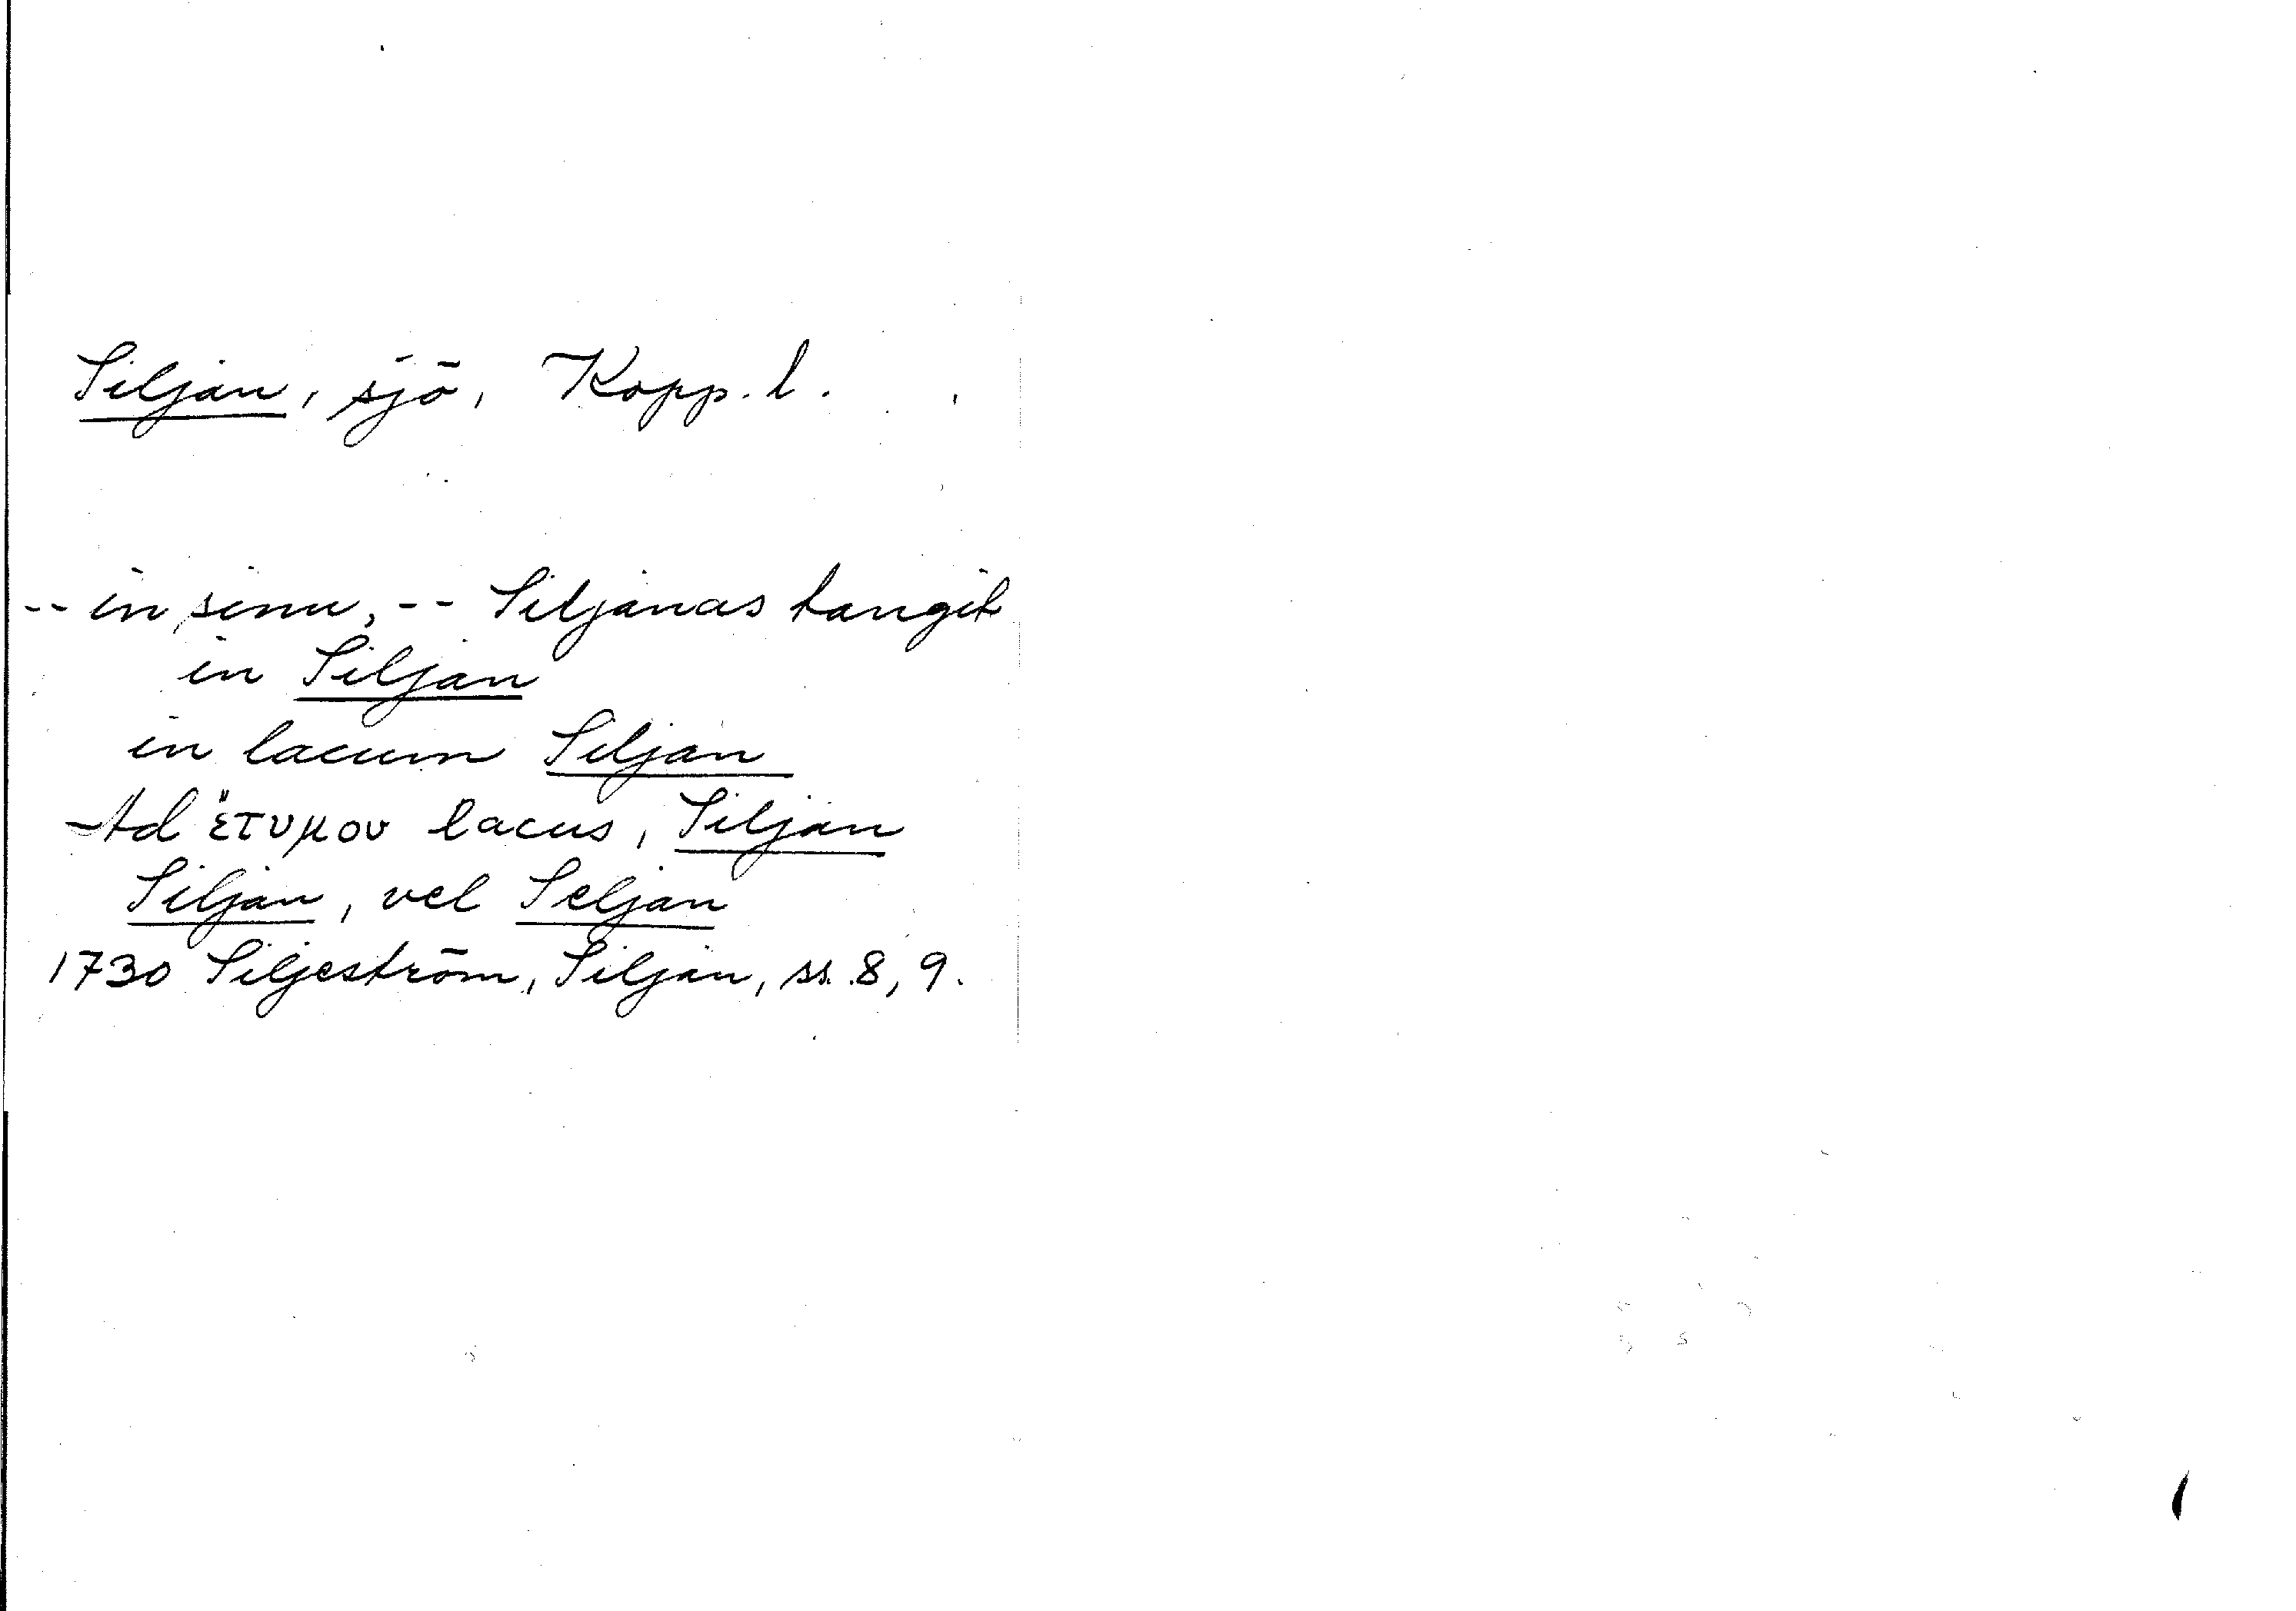 Siljan, sjö, Kopp. l.
-- in sinu, -- Siljanas tangit
in Siljan
in lacum Siljan
Ad ἔτυμον lacus, Siljan
Siljan, vel Seljan
1730 Siljeström, Siljan, ss. 8, 9.